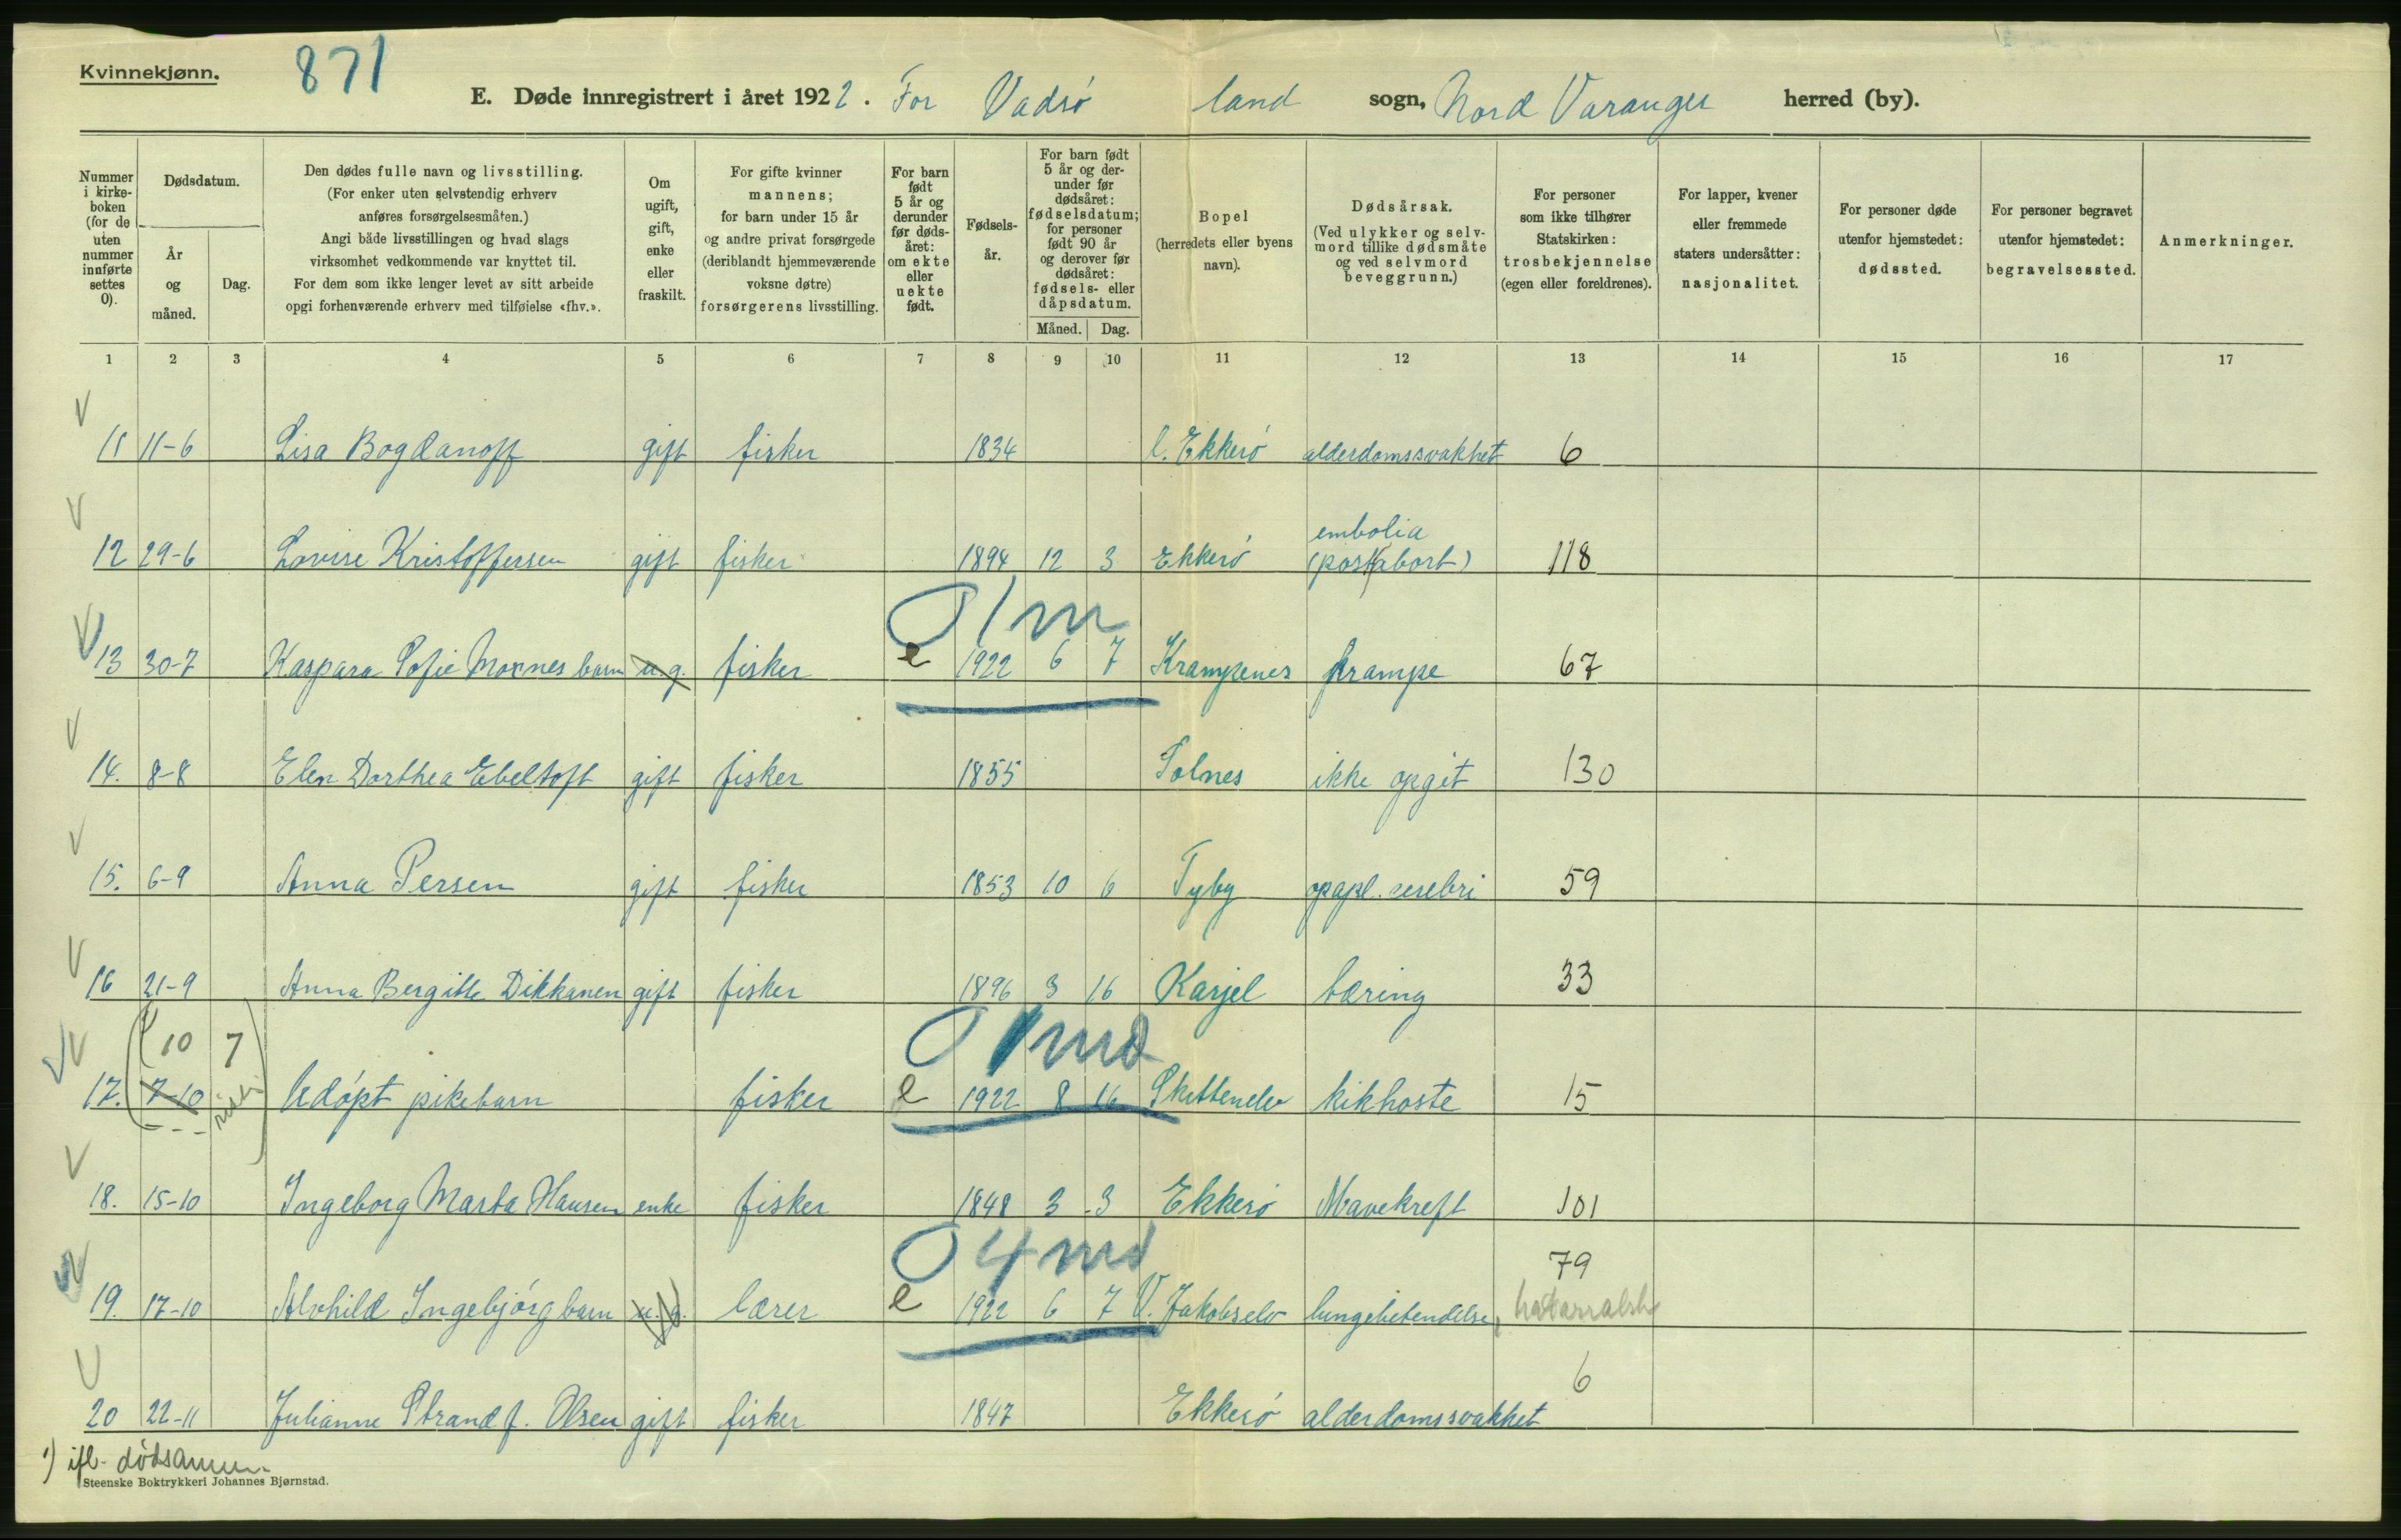 Kvinnekjønn.
871
E. Døde innregistrert i året 1922. For Vadsö land sogn, Nord Varanger herred (by).
Nummer i kirkeboken (for de uten nummer innførte settes 0).
Dødsdatum.
År og måned.
Dag.
Den dødes fulle navn og livsstilling.
(For enker uten selvstendig erhverv
anføres forsørgelsesmåten.)
Angi både livsstillingen og hvad slags
virksomhet vedkommende var knyttet til.
For dem som ikke lenger levet av sitt arbeide
opgi forhenværende erhverv med tilføielse «fhv.».
Om ugift, gift, enke eller fraskilt.
For gifte kvinner
mannens;
for barn under 15 år
og andre privat forsørgede
(deriblandt hjemmeværende
voksne døtre)
forsørgerens livsstilling.
For barn født 5 år og derunder før dødsåret: om ekte eller uekte født.
Fødselsår.
For barn født 5 år og derunder før dødsåret: fødselsdatum; for personer født 90 år og derover før dødsåret: fødsels- eller dåpsdatum.
Måned. Dag.
Bopel
(herredets eller byens
navn).
Dødsårsak.
(Ved ulykker og selvmord tillike dødsmåte og ved selvmord beveggrunn.)
For personer
som ikke tilhører
Statskirken:
trosbekjennelse
(egen eller foreldrenes).
For lapper, kvener
eller fremmede
staters undersåtter:
nasjonalitet.
For personer døde
utenfor hjemstedet:
dødssted.
For personer begravet
utenfor hjemstedet:
begravelsessted.
Anmerkninger.
1 2 3 4 5 6 7 8 9 10 11 12 13 14 15 16 17
11 11-6 Lisa Bogdanoff gift fisker 1834 l. Ekkerö alderdomssvakhet 6
12 29-6 Lovise Kristoffersen gift fisker 1894 12 3 Ekkerö embolia (post abort) 118
0 1 m
13 30-7 Kaspara Sofie Moxnes barn u.g. fisker e 1922 6 7 Krampenes krampe 67
14. 8-8 Elen Dorthea Ebeltoft gift fisker 1855 Golnes ikke opgit 130
15. 6-9 Anna Persen gift fisker 1853 10 6 Tyby apopl. cerebri 59
16 21-9 Anna Bergitte Dikkanen gift fisker 1896 3 16 Karjel tæring 33
10 7
0 1 md
17. 7-10 Udöpt pikebarn fisker e 1922 8 16 Skittenelv kikhoste 15
18. 15-10 Ingeborg Marta Hansen enke fisker 1848 3 3 Ekkerö Mavekreft 101
0 4 md
79
19. 17-10 Alvhild Ingebjörg barn u.g. lærer e 1922 6 7 V. Jakobselv lungebetendelse, katarralsk
6
20 22-11 Julianne Strand f. Olsen gift fisker 1847 Ekkerö alderdomssvakhet
1) ifl. dödsanm.
Steenske Boktrykkeri Johannes Bjørnstad.